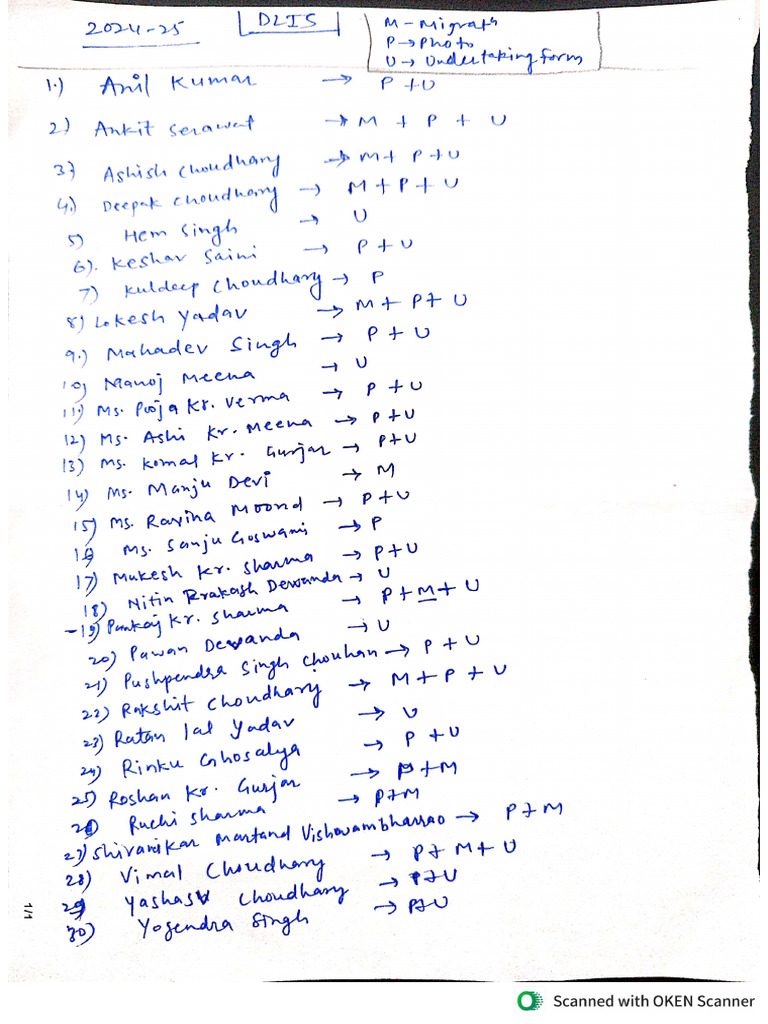 2024-25 DLIS M - Migrath
P → Photo
U → Undertaking form
1.) Anil Kumar → P + U
2) Ankit Serawat → M + P + U
3) Ashish Choudhary → M + P + U
4.) Deepak Choudhary → M + P + U
5) Hem Singh → U
6). Keshav Saini → P + U
7) Kuldeep Choudhary → P
8) Lokesh Yadav → M + P + U
9.) Mahadev Singh → P + U
10) Manoj Meena → U
11) Ms. Pooja Kr. Verma → P + U
12) Ms. Ashi Kr. Meena → P + U
13) Ms. Komal Kr. Gurjar → P + U
14) Ms. Manju Devi → M
15) Ms. Ravina Moond → P + U
16 Ms. Sanju Goswami → P
17) Mukesh Kr. Sharma → P + U
18) Nitin Prakash Dewanda → U
19) Pankaj Kr. Sharma → P + M + U
20) Pawan Dewanda → U
21) Pushpendra Singh Chouhan → P + U
22) Rakshit Choudhary → M + P + U
23) Ratan lal Yadav → U
24) Rinku Ghosalya → P + U
25) Roshan Kr. Gurjar → P + M
26 Ruchi Sharma → P + M
27) Shivanikar Martand Vishwambharrao → P + M
28) Vimal Choudhary → P + M + U
29 Yashasv Choudhary → P + U
30) Yogendra Singh → P + U
1/1
Scanned with OKEN Scanner